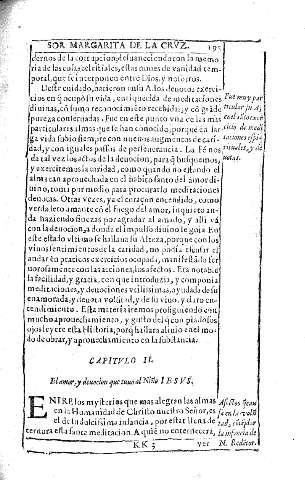 SOR MARGARITA DE LA CRVZ.
dernos de la corrupcion, desuaneciendo con la memoria
de las cosas celestiales, estas nuues de vanidad temporal,
que se interponen entre Dios, y nosotros.
Deste cuidado, nacieron en su A. los deuotos exercicios
en q̃ ocupò su vida, enriquecida de meditaciones
diuinas, cõ sumo reconocimiẽto recebidas, y cõ grãde
pureza conseruadas. Fue en este punto vna de las mas
particulares almas que se han conocido, porque en larga
vida
de caridad,
y con iguales passos de perseuerancia. La Fè nos
da tal vez los actos de la deuocion, para q̃ busquemos,
y exercitemos la caridad, como quando no estando el
alma tan aprouechada en el habito santo del amor diuino,
toma por medio para procurarlo meditaciones
deuotas. Otras vezes, ya el coraçon encendido, como
verdadero amante con el fuego del amor, inquieto anda
haziendo finezas por agradar al amado, y alli và
con la deuocion, a donde el impulso diuino le guia. En
este estado vltimo se hallaua su Alteza, porque con los
viuos sentimientos de la caridad, no podia dexar de
andar en praticas exercicios ocupada, manifestãdo feruorosamente
con las acciones, los afectos. Era notable
la facilidad, y gracia, con que introduzia, y componia
meditaciones, y deuociones vtilissimas, ayudada de su
enamorada, y deuota volũtad, y de su viuo, y claro entendimiento.
Esta materia iremos prosiguiendo con
mucho aprouechamiento, y gusto del q̃ con piadosos
ojos leyere esta Historia, porq̃ hallara aliuio en el modo
de obrar, y aprouechamiento en la substancia.
Fue muy particular
su A.
en el exercicio
de meditaciones
y deuotas.
CAPITVLO II.
El amor, y deuocion que tuuo al Niño IESVS.
ENTRE los mysterios que mas alegran las almas
en la Humanidad de Christo nuestro Señor, es
el de su dulcissima infancia, por estar llena de
ternura esta santa meditacion. A quiẽ no enternecera,
la infancia de
N. Redẽtor.
KK 3
ver